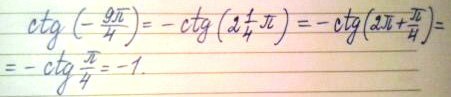 ctg(-9π/4) = -ctg(2 1/4 π) = -ctg(2π+π/4) =
= -ctg π/4 = -1.